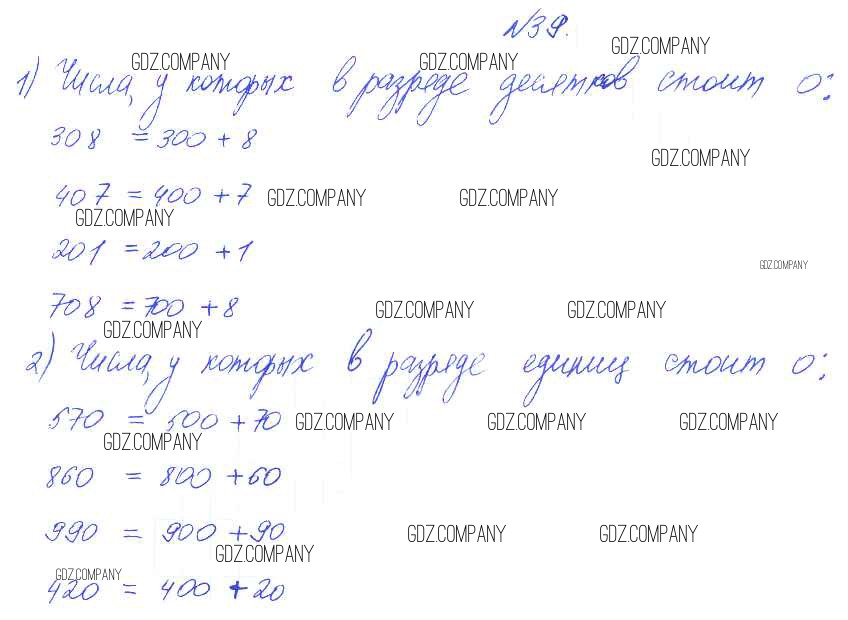 №39.
GDZ.COMPANY GDZ.COMPANY GDZ.COMPANY
1) Числа, у которых в разряде десятков стоит 0:
308 = 300 + 8
GDZ.COMPANY
407 = 400 + 7 GDZ.COMPANY GDZ.COMPANY
GDZ.COMPANY
201 = 200 + 1
GDZ.COMPANY
708 = 700 + 8 GDZ.COMPANY GDZ.COMPANY
GDZ.COMPANY
2) Числа, у которых в разряде единиц стоит 0:
570 = 500 + 70 GDZ.COMPANY GDZ.COMPANY GDZ.COMPANY
GDZ.COMPANY
860 = 800 + 60
990 = 900 + 90 GDZ.COMPANY GDZ.COMPANY
GDZ.COMPANY
GDZ.COMPANY
420 = 400 + 20